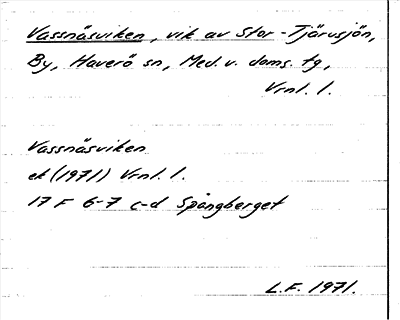 Vassnäsviken, vik av Stor-Tjärusjön,
By, Haverö sn, Med. v. doms. tg,
Vrnl. l.
Vassnäsviken
ek (1971) Vrnl. l.
17 F 6-7 c-d Spångberget
L.F. 1971.